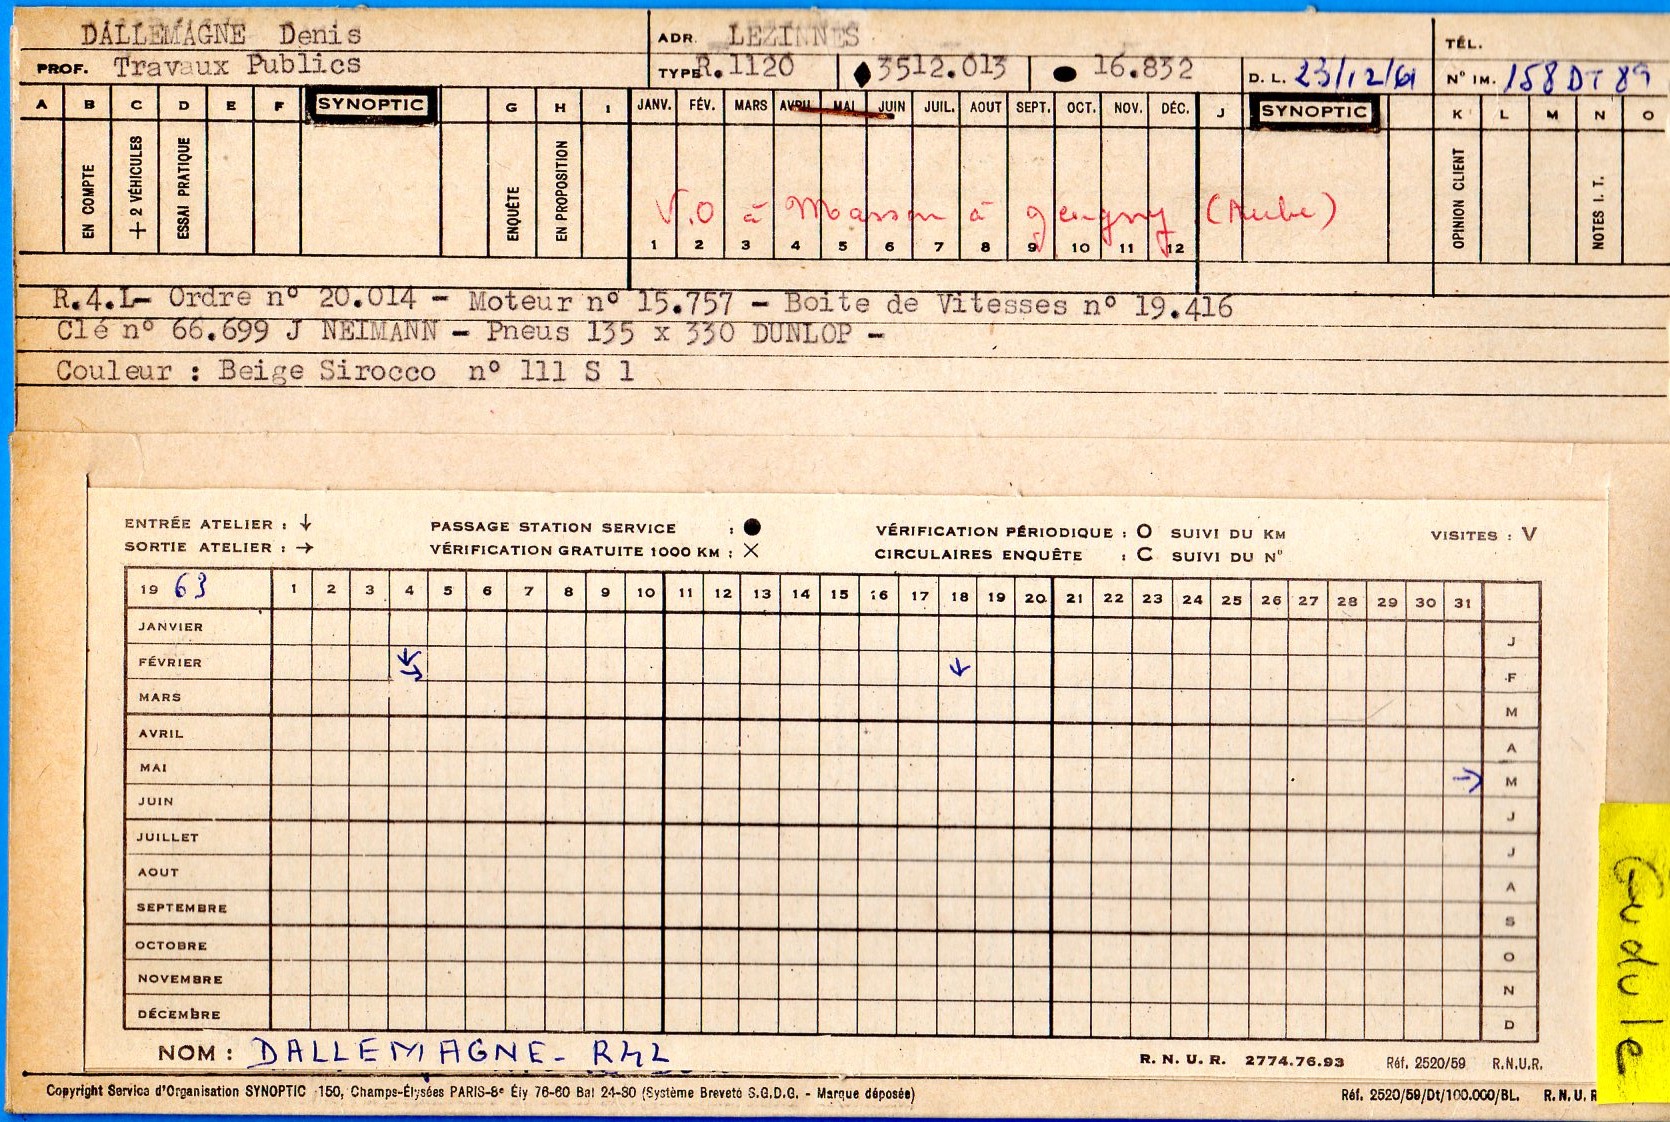 DALLEMAGNE Denis ADR. LEZINNES TÉL.
PROF. Travaux Publics TYPE R.1120 3512.013 16.832 D. L. 23/12/61 N° IM. 158 DT 89
A B C D E F SYNOPTIC G H I JANV. FÉV. MARS AVRIL MAI JUIN JUIL. AOUT SEPT. OCT. NOV. DÉC. J SYNOPTIC K L M N O
EN COMPTE
+ 2 VÉHICULES
ESSAI PRATIQUE
ENQUÊTE
EN PROPOSITION
OPINION CLIENT
NOTES I. T.
V.O à Masson à Jeugny (Aube)
1 2 3 4 5 6 7 8 9 10 11 12
R.4.L- Ordre n° 20.014 - Moteur n° 15.757 - Boite de Vitesses n° 19.416
Clé n° 66.699 J NEIMANN - Pneus 135 x 330 DUNLOP -
Couleur : Beige Sirocco n° 111 S 1
ENTRÉE ATELIER : ↓ PASSAGE STATION SERVICE : ● VÉRIFICATION PÉRIODIQUE : O SUIVI DU KM VISITES : V
SORTIE ATELIER : → VÉRIFICATION GRATUITE 1000 KM : X CIRCULAIRES ENQUÊTE : C SUIVI DU N°
19 63 1 2 3 4 5 6 7 8 9 10 11 12 13 14 15 16 17 18 19 20 21 22 23 24 25 26 27 28 29 30 31
JANVIER J
FÉVRIER ↓ → ↓ F
MARS M
AVRIL A
MAI → M
JUIN J
JUILLET J
AOUT A
SEPTEMBRE S
OCTOBRE O
NOVEMBRE N
DÉCEMBRE D
NOM : DALLEMAGNE - R4L R. N. U. R. 2774.76.93 Réf. 2520/59 R.N.U.R.
Copyright Service d'Organisation SYNOPTIC 150, Champs-Élysées PARIS-8e Ély 76-60 Bal 24-80 (Système Breveté S.G.D.G. - Marque déposée) Réf. 2520/59/Dt/100.000/BL. R. N. U. R